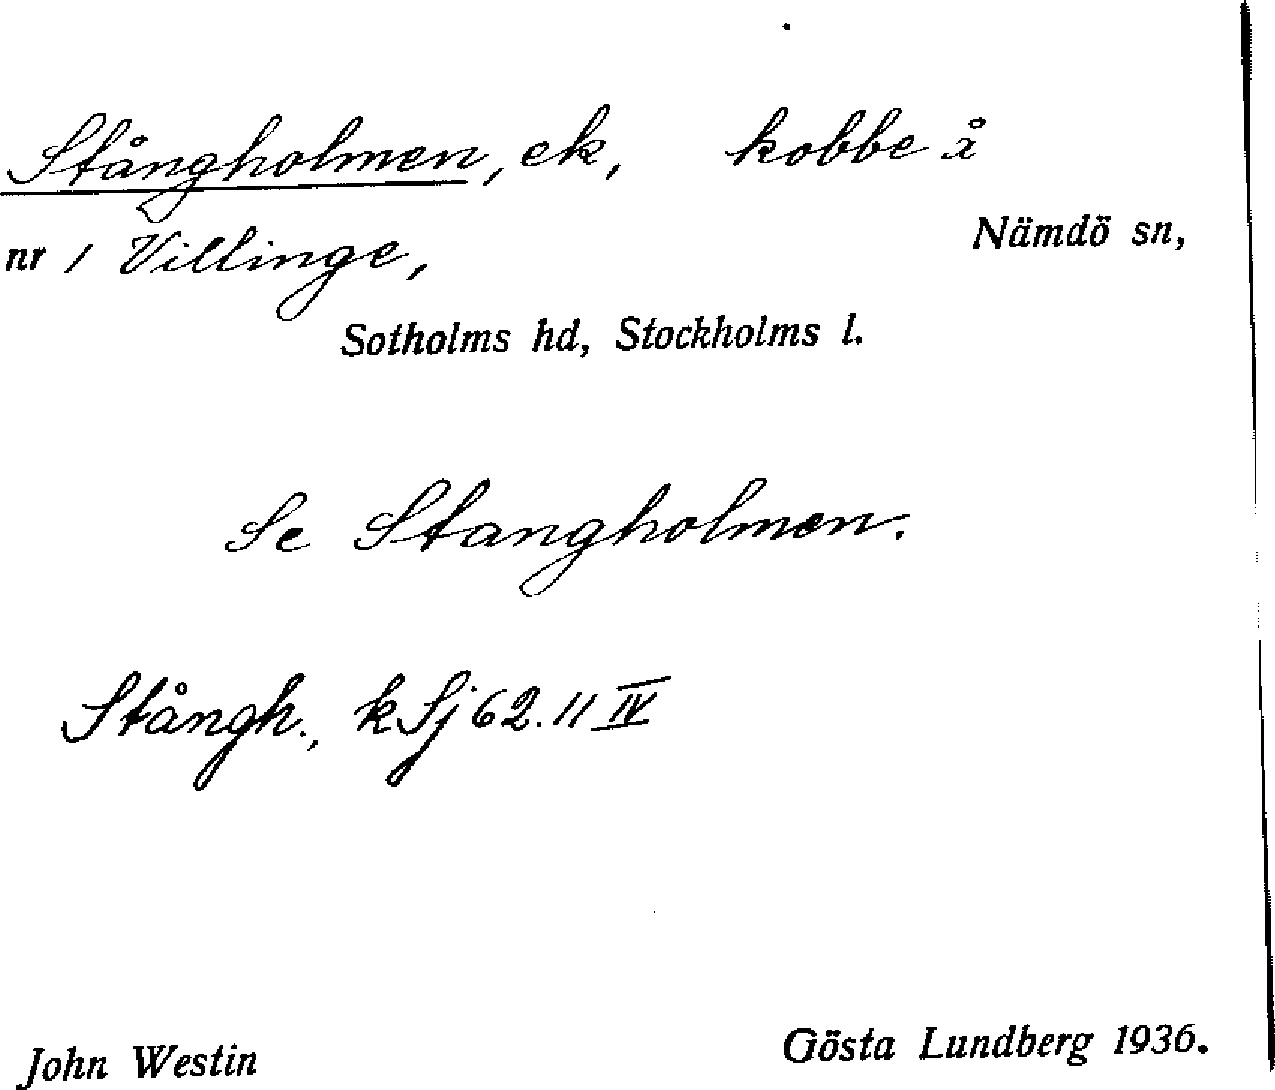 Stångholmen, ek, kobbe å
Nämdö sn,
nr 1 Villinge,
Sotholms hd, Stockholms l.
Se Stangholmen.
Stångh., k Sj 62. 11 IV
John Westin
Gösta Lundberg 1936.